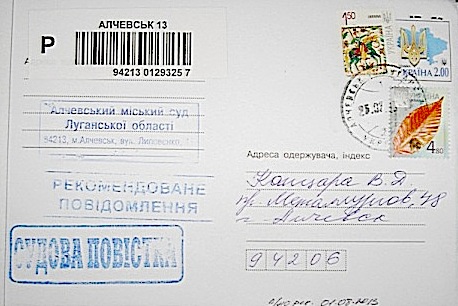 АЛЧЕВСЬК 13
P
94213 0129325 7
Алчевський міський суд
Луганської області
94213, м.Алчевськ, вул. Липовенко,
РЕКОМЕНДОВАНЕ
ПОВІДОМЛЕННЯ
СУДОВА ПОВІСТКА
1.50
УКРАЇНА 2.00
4.80
Адреса одержувача, індекс
Кашара В.Д
пр Металлургов, 48
г Алчевск
94206